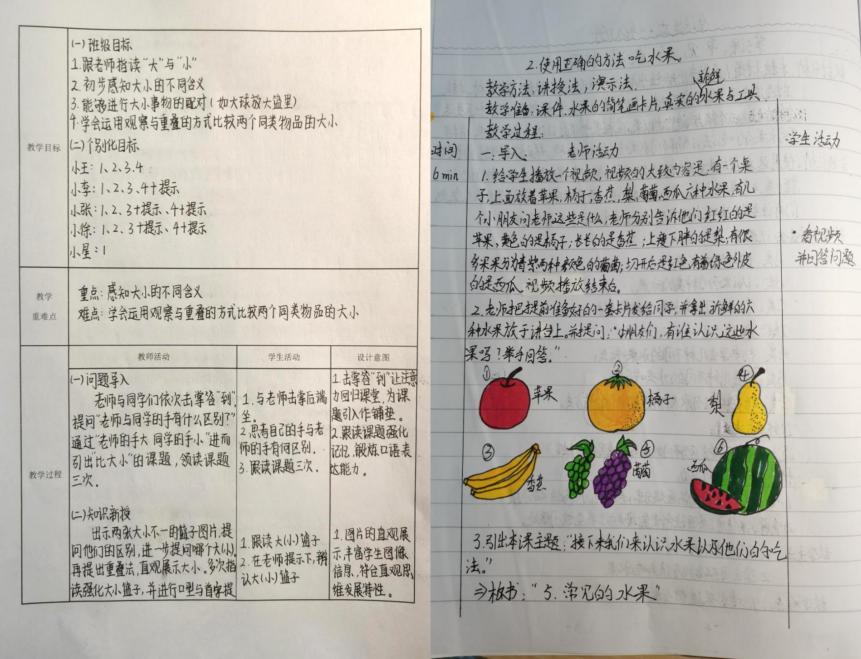 教学目标
(一)班级目标
1.跟老师指读“大”与“小”
2.初步感知大小的不同含义
3.能够进行大小事物的配对(如大球放大盆里)
4.学会运用观察与重叠的方式比较两个同类物品的大小
(二)个别化目标
小王:1、2、3、4
小李:1、2、3、4+提示
小张:1、2、3+提示、4+提示
小徐:1、2、3+提示、4+提示
小星:1
教学
重难点
重点:感知大小的不同含义
难点:学会运用观察与重叠的方式比较两个同类物品的大小
教师活动
学生活动
设计意图
教学过程
(一)问题导入
老师与同学们依次击掌答“到”,
提问“老师与同学的手有什么区别?”
通过“老师的手大 同学的手小”进而
引出“比大小”的课题,领读课题
三次。
1.与老师击掌后端
坐。
2.思考自己的手与老
师的手有何区别.
3.跟读课题三次.
1.击掌答“到”让注意
力回归课堂,为课
题引入作铺垫。
2.跟读课题强化
记忆,锻炼口语表
达能力。
(二)知识新授
出示两张大小不一的篮子图片,提
问他们的区别,进一步提问哪个大(小).
再提出重叠法,直观展示大小。多次指
读强化大小篮子,并进行口型与首字提
1.跟读大(小)篮子
2.在老师提示下,辨
认大(小)篮子
1.图片的直观展
示,丰富学生图像
信息,符合直观思
维发展特性。
2.使用正确的方法吃水果。
教学方法:讲授法,演示法.
新鲜
教学准备:课件.水果的简笔画卡片,真实的水果与工具
教学过程:
时间
一.导入.
老师活动
学生活动
6min
1.给学生播放一个视频,视频的大致内容是:有一个桌
子,上面放着苹果,橘子,香蕉,梨,葡萄,西瓜六种水果,有几
个小朋友问老师这些是什么,老师分别告诉他们:红红的是
苹果,黄色的是橘子;长长的是香蕉;上瘦下胖的是梨;有很
多果果分为青紫两种颜色的葡萄;切开后是红色,有着绿色外皮
的是西瓜.视频播放结束.
·看视频
并回答问题
2.老师把提前准备好的一套卡片发给同学,并拿出新鲜的六
种水果放于讲台上.并提问:“小朋友们,有谁认识这些水
果吗?举手回答。”
①
苹果
②
橘子
④
梨
③
香蕉
⑤
葡萄
⑥
西瓜
3.引出本课主题:“接下来我们来认识水果以及他们的吃
法。”
⇒板书:“5.常见的水果”